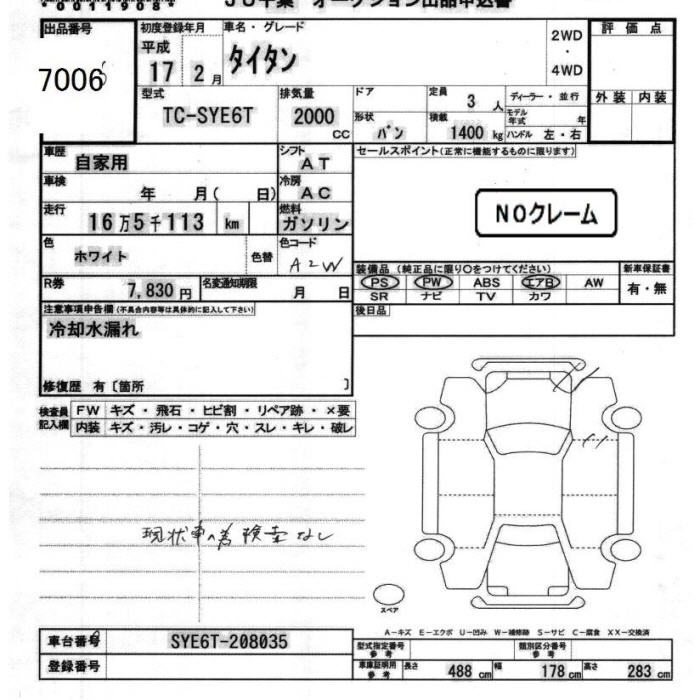 オークション出品申込書
出品番号 初度登録年月 車名・グレード 2WD 評価点
平成 タイタン ・
7006 17 2月 4WD
型式 排気量 ドア 定員 3人 ディーラー・並行 外装 内装
TC-SYE6T 2000 cc 形状 バン 積載 1400 kg モデル年式 年 ハンドル 左・右
車歴 自家用 シフト AT セールスポイント(正常に機能するものに限ります)
車検 年 月( 日) 冷房 AC
走行 16万5千113 km 燃料 ガソリン NOクレーム
色 ホワイト 色替 色コード A2W
装備品(純正品に限り○をつけてください) 新車保証書
R券 7,830円 名変通知期限 月 日 PS PW ABS エアB AW 有・無
SR ナビ TV カワ
注意事項申告欄(不具合内容等は具体的に記入して下さい) 後日品
冷却水漏れ
修復歴 有〔箇所 〕
検査員記入欄 FW キズ・飛石・ヒビ割・リペア跡・×要
内装 キズ・汚レ・コゲ・穴・スレ・キレ・破レ
現状車の為検査なし
スペア
A-キズ E-エクボ U-凹み W-補修跡 S-サビ C-腐食 XX-交換済
車台番号 SYE6T-208035 型式指定番号 参考 類別区分番号 参考
登録番号 車庫証明用 参考 長さ 488 cm 幅 178 cm 高さ 283 cm